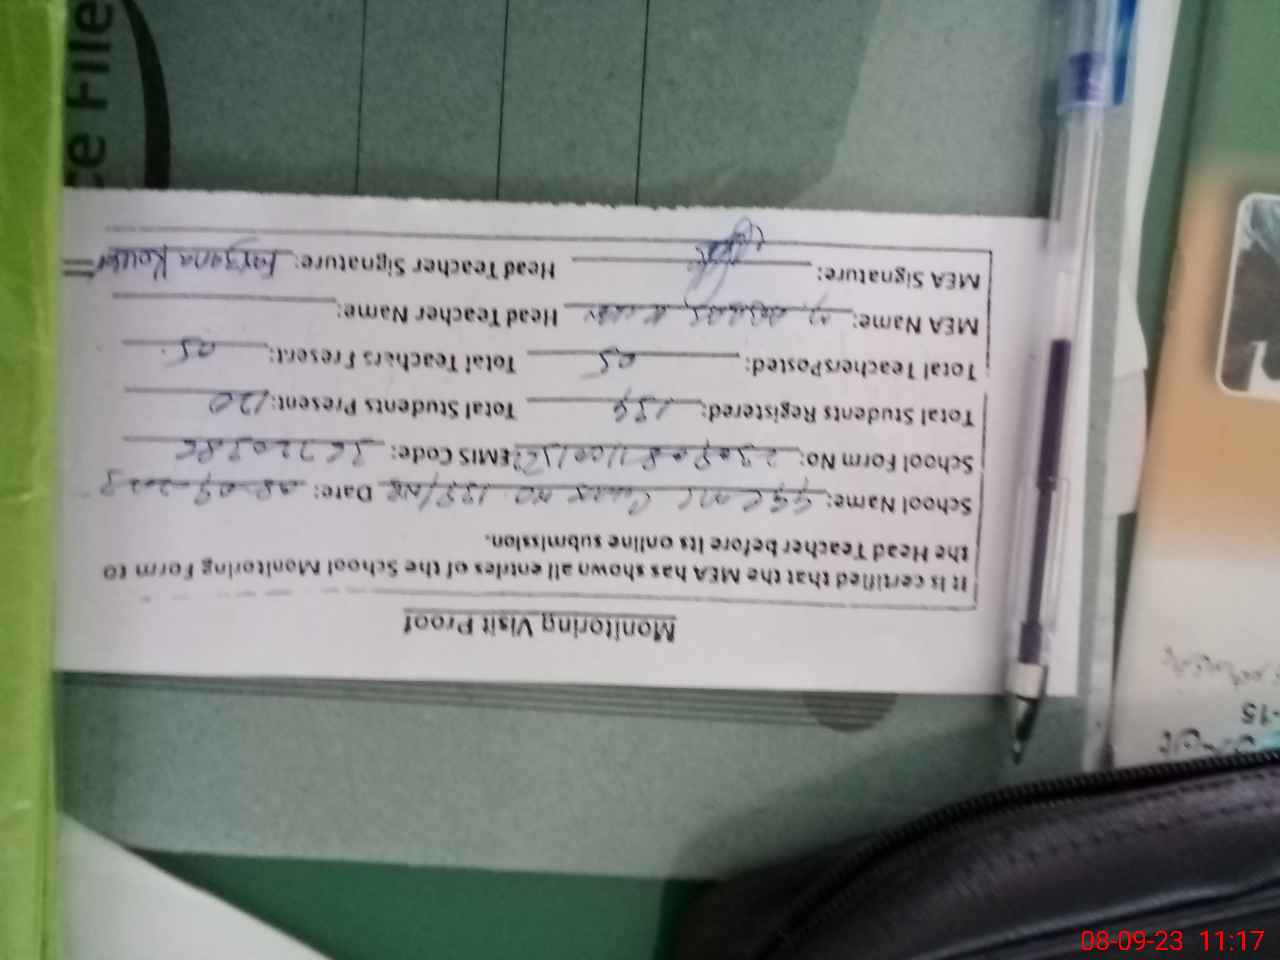 Monitoring Visit Proof
It is certified that the MEA has shown all entries of the School Monitoring Form to
the Head Teacher before its online submission.
School Name: No. 139/NB Date: 08-09-2023
School Form No: EMIS Code:
Total Students Registered: 139 Total Students Present: 120
Total TeachersPosted: 05 Total Teachers Present: 05
MEA Name: Head Teacher Name:
MEA Signature: Head Teacher Signature: Farzana Kousar
ce File
-15
08-09-23 11:17